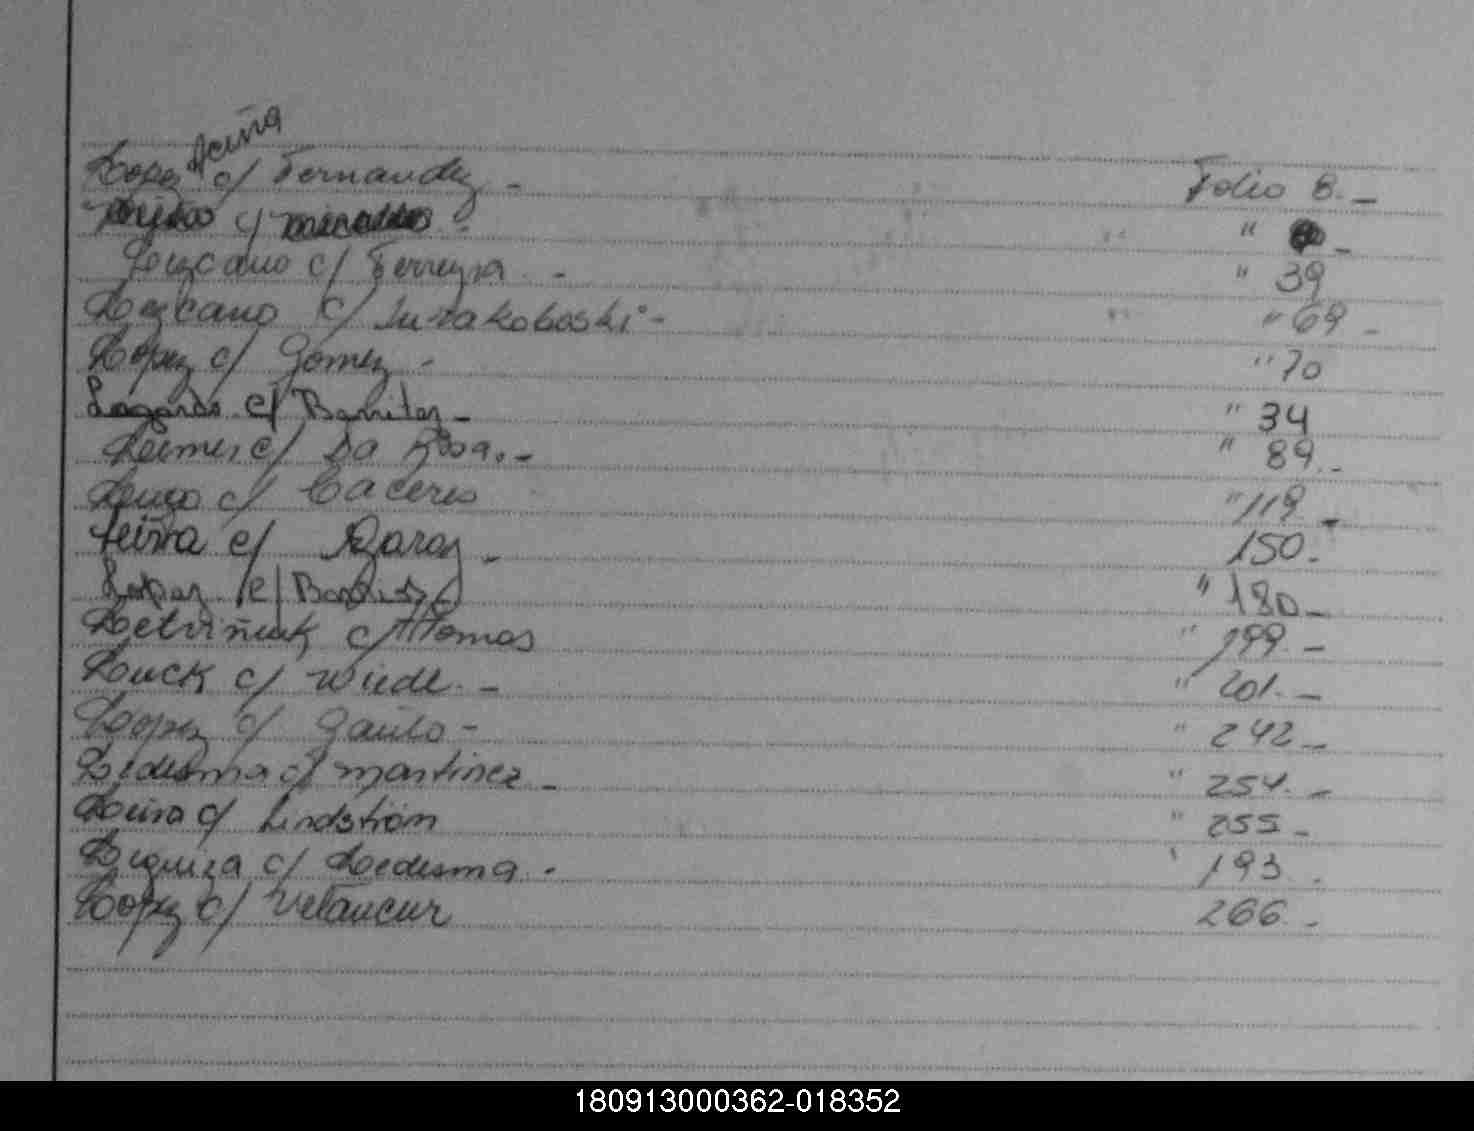 Lopez Aciña c/ Fernandez - Folio 8. -
c/ " -
Lezcano c/ Ferreyra. - " 39
Lezcano c/ Jurakoboski - " 69 -
Lopez c/ Gomez - " 70
Lagardo c/ Barritez - " 34
Leimer c/ Da Rosa. - " 89. -
Lugo c/ Caceres " 119 -
Leiva c/ Garay - 150. -
Lopez c/ " 180 -
Letviñuk c/ Tomas " 199. -
Luck c/ Wiede. - " 201. -
Lopez c/ Gauto - " 242 -
Ledesma c/ Martinez - " 254. -
Leiva c/ Lindström " 255 -
Leguiza c/ Ledesma. - ' 193.
Lopez c/ Vetancur 266. -
180913000362-018352